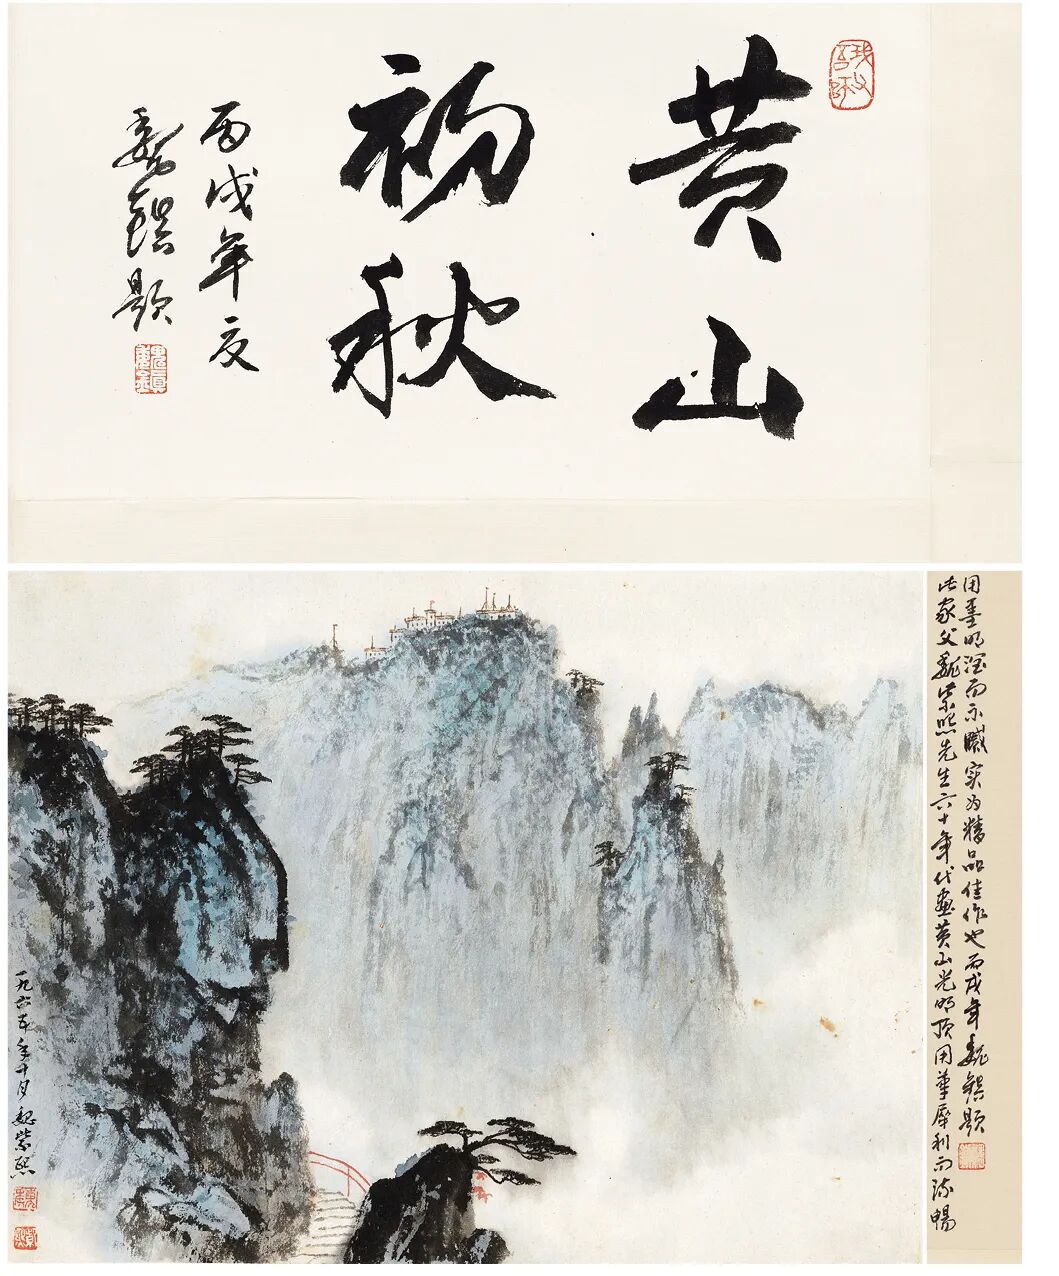 黄山
初秋
丙戌年夏
魏镇题
一九六五年十月魏紫熙
此家父魏紫熙先生六十年代畫黄山光明顶用筆犀利而流暢
用墨明润而不腻实为精品佳作也丙戌年魏镇题